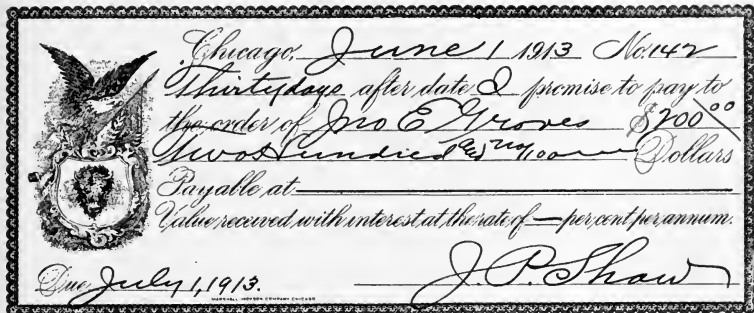 Chicago, June 1 1913 No. 142
Thirty days after date I promise to pay to
the order of Jno E Groves $200 00
Two Hundred and no/100 Dollars
Payable at
Value received with interest at the rate of — per cent per annum.
Due July 1, 1913. J. P. Shaw
MARSHALL JACKSON COMPANY CHICAGO